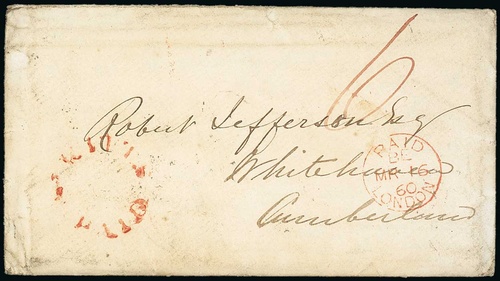 6
Robert Jefferson Esq
Whitehaven
Cumberland
PAID
BL
MR 16
60
LONDON
PAID